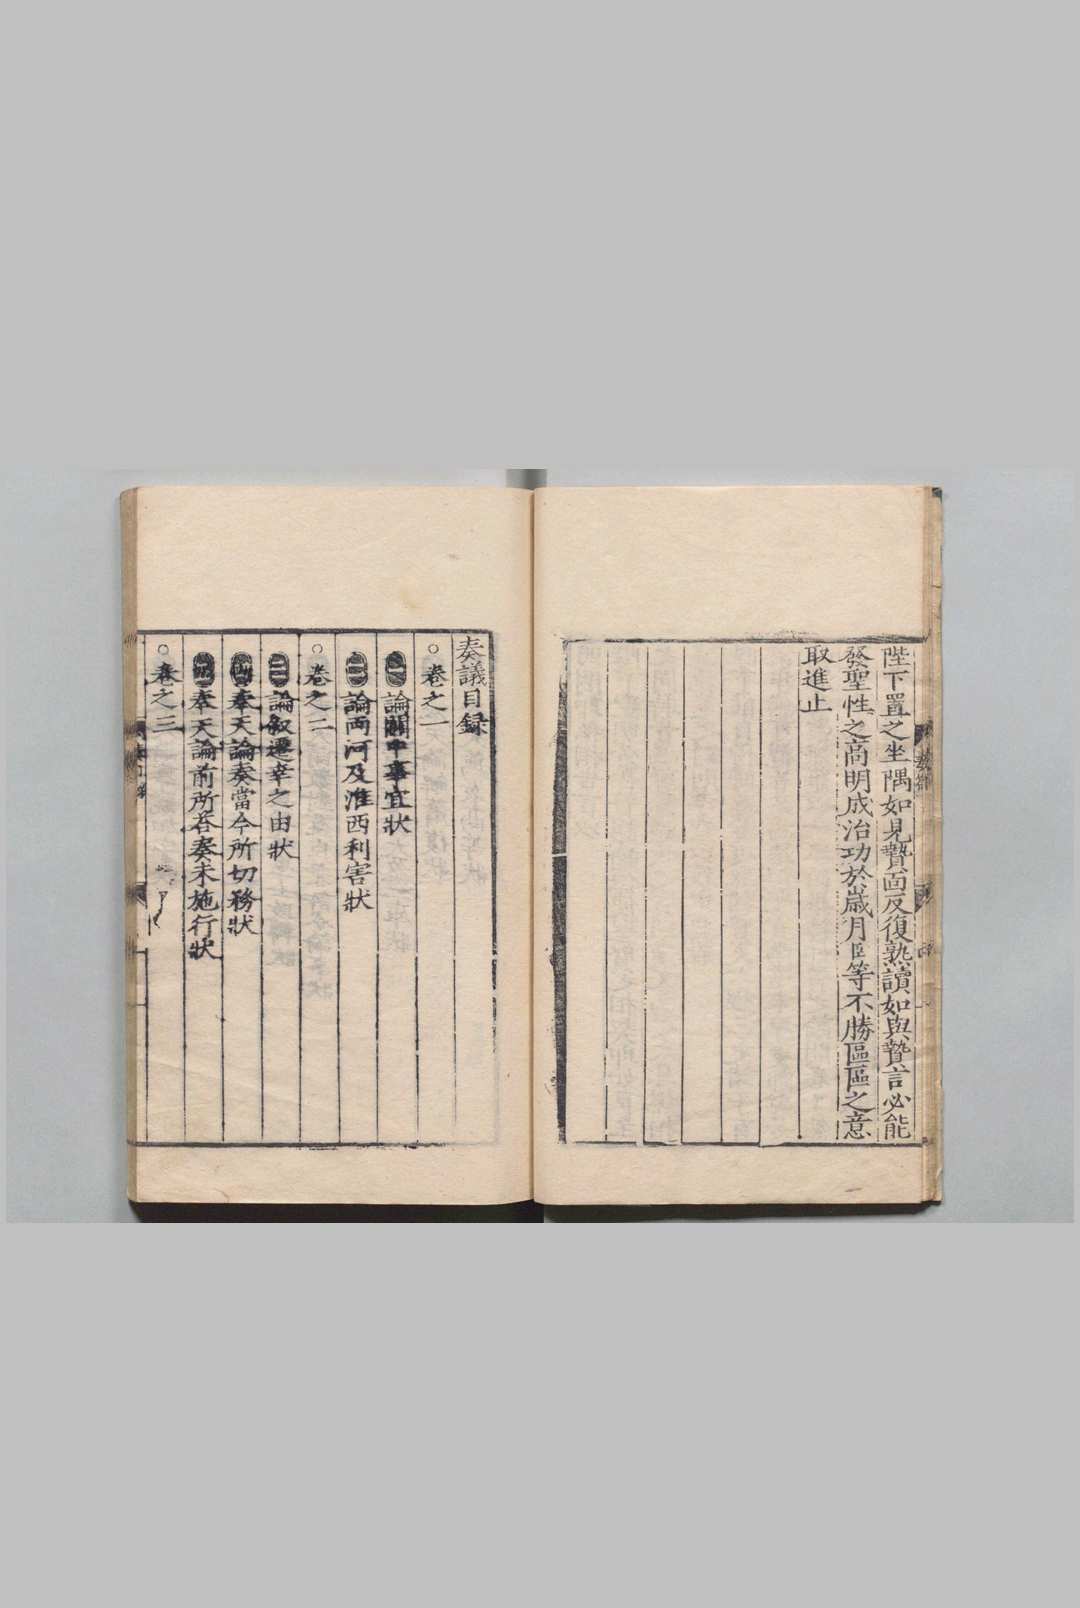 陛下置之坐隅如見贄面反復熟讀如與贄言必能
發聖性之高明成治功於歲月臣等不勝區區之意
取進止
奏議目録
○卷之一
一 論關中事宜狀
二 論両河及淮西利害狀
○卷之二
三 論叙遷幸之由狀
四 奉天論奏當今所切務狀
奉天論前所荅奏未施行狀
○卷之三